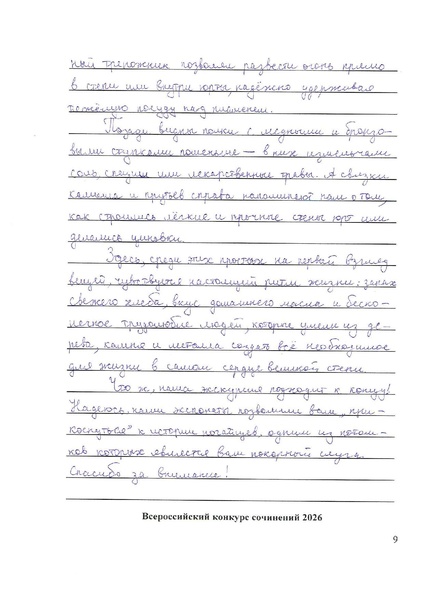 ный треножник позволял развести огонь прямо
в степи или внутри юрты, надёжно удерживая
тяжёлую посуду над пламенем.
Позади видны полки с медными и бронзо-
выми ступками поменьше – в них измельчали
соль, специи или лекарственные травы. А связки
камыша и прутьев справа напоминают нам о том,
как строились лёгкие и прочные стены юрт или
делались циновки.
Здесь, среди этих простых на первый взгляд
вещей, чувствуется настоящий ритм жизни: запах
свежего хлеба, вкус домашнего масла и беско-
нечное трудолюбие людей, которые умели из де-
рева, камня и металла создать всё необходимое
для жизни в самом сердце великой степи.
Что ж, наша экскурсия подходит к концу!
Надеюсь, наши экспонаты позволили вам „при-
коснуться" к истории ногайцев, одним из потом-
ков которых является ваш покорный слуга.
Спасибо за внимание!
Всероссийский конкурс сочинений 2026
9